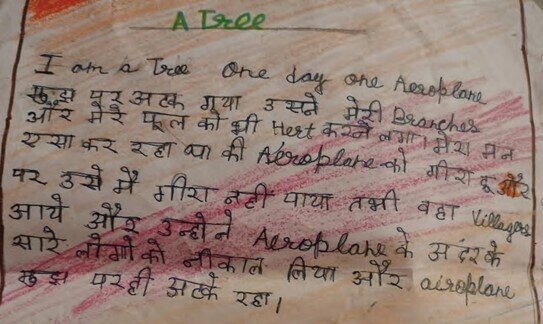 A Tree
I am a Tree One day one Aeroplane
मुझ पर अटक गया उसने मेरी Branches
और मेरे फूल को भी Hert करने लगा। मेरा मन
एसा कर रहा था की Aeroplane को गीरा दू और
पर उसे मै गीरा नही पाया तभी वहा Villagers
आये और उन्होने Aeroplane के अंदर के
सारे लोगो को नीकाल लिया और airoplane
मुझ पर ही अटके रहा।